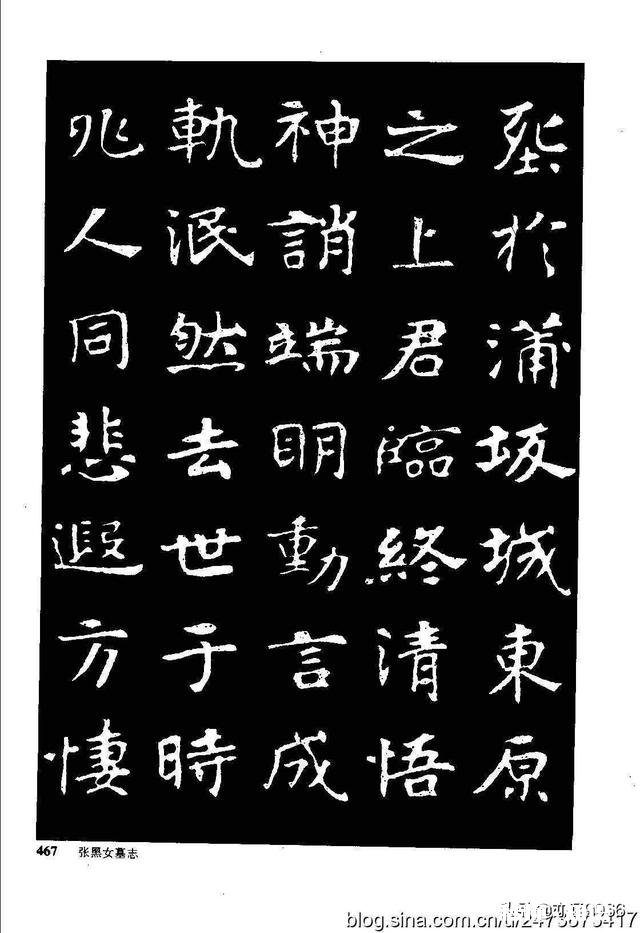 葬於蒲坂城東原
之上君臨終清悟
神誚端明動言成
軌泯然去世于時
兆人同悲遐方悽
467 张黑女墓志